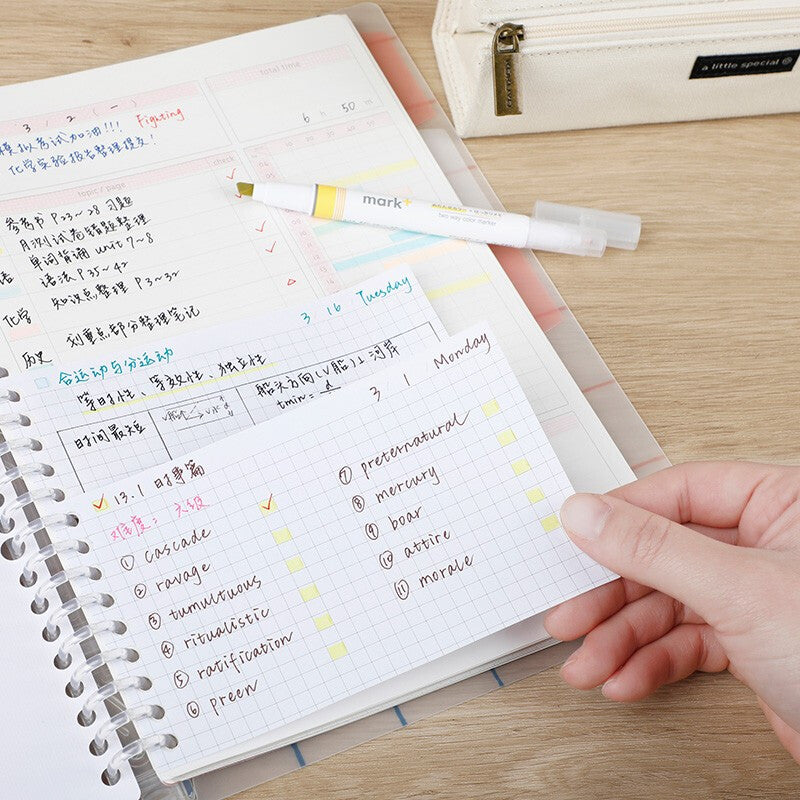 a little special
mark+
two way color marker
total time
6 h 50 m
10 20 30 40 50
3 / 2 ( 一 )
模拟考试加油!!! Fighting
化学实验报告整理提交!
topic / page
check
参考书 P23~28 习题
月测试卷错题整理
单词背诵 unit 7~8
语 语法 P35~42
知识点整理 P3~32
化学
划重点部分整理笔记
历史
3 16 Tuesday
合运动与分运动
等时性、等效性、独立性
船头方向(V船)⊥河岸
tmin = d
时间最短
3 / 1 Monday
13.1 时事篇
难度: 六级
① cascade
② ravage
③ tumultuous
④ ritualistic
⑤ ratification
⑥ preen
⑦ preternatural
⑧ mercury
⑨ boar
⑩ attire
⑪ morale